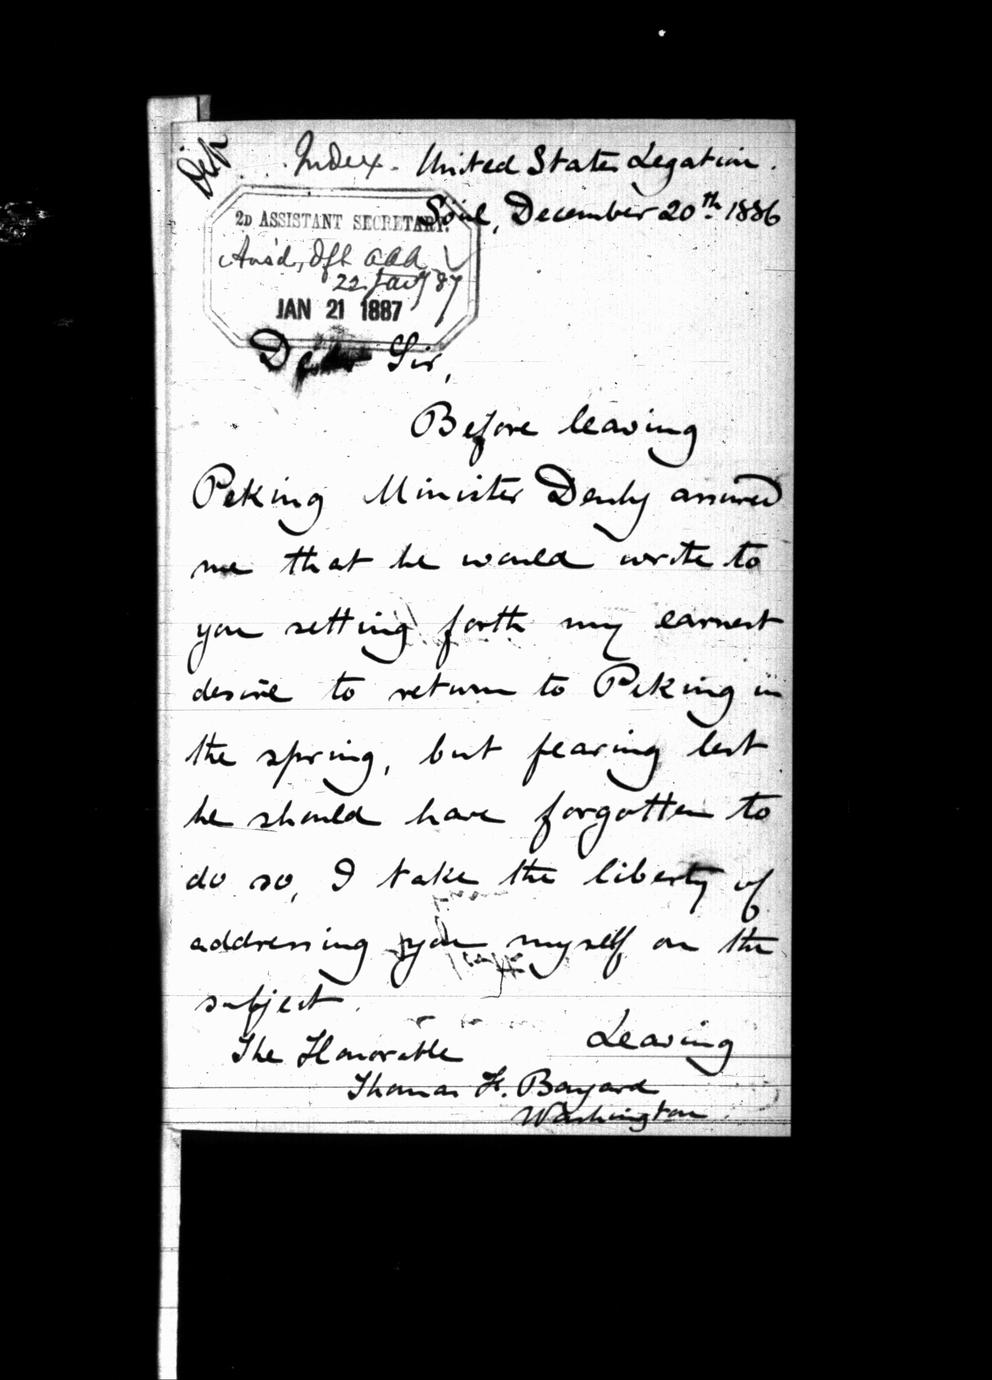 Dip
Index. United States Legation.
Söul, December 20th 1886
2D ASSISTANT SECRETARY.
Ans'd, dft AAA
22 Jan'y 87
JAN 21 1887
Dear Sir,
Before leaving
Peking Minister Denby assured
me that he would write to
you setting forth my earnest
desire to return to Peking in
the spring, but fearing lest
he should have forgotten to
do so, I take the liberty of
addressing you myself on the
subject.
Leaving
The Honorable
Thomas F. Bayard
Washington.